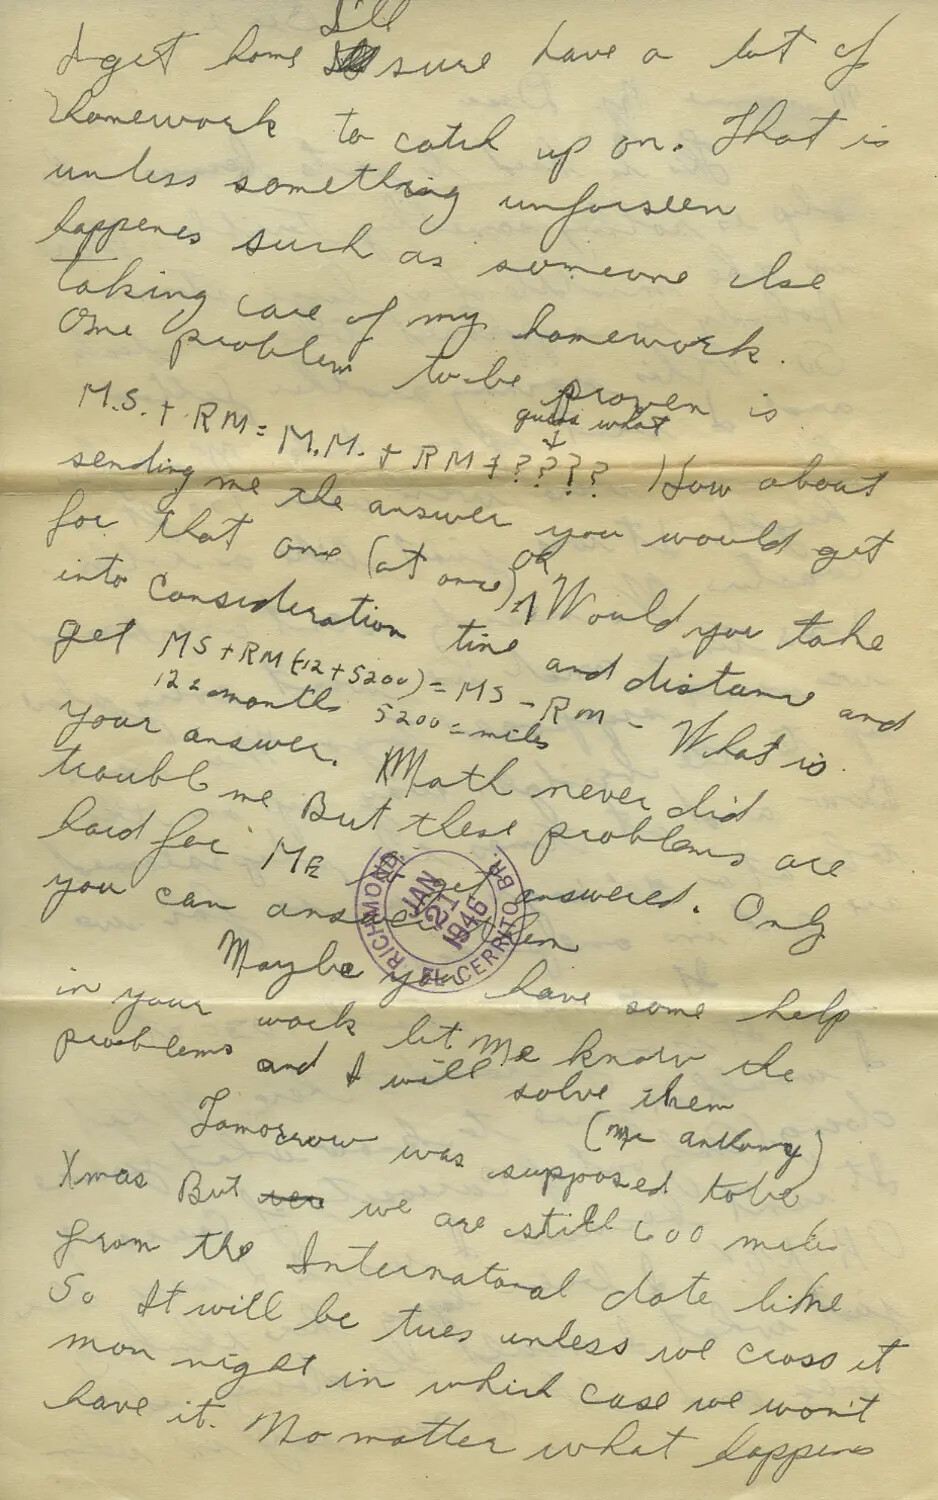 I'll
I get home sure have a lot of
homework to catch up on. That is
unless something unforseen
happenes such as someone else
taking care of my homework.
One problem to be proven is
guess what
↓
M.S. + RM = M.M. + RM + ???? How about
sending me the answer you would get
for that one (at once) or Would you take
into Consideration time and distance and
get MS + RM (12 + 5200) = MS - RM - What is
12 = months 5200 = miles
your answer. Math never did
trouble me But these problems are
hard for Me to get answered. Only
you can answer them
RICHMOND, CALIF.
JAN
21
1946
EL CERRITO BR.
Maybe you have some help
in your work let Me know the
problems and I will solve them
(Mr anthony)
Tomorrow was supposed to be
Xmas But we are still 600 miles
from the Internatonal date line
So It will be tues unless we cross it
mon night in which case we won't
have it. No matter what happens